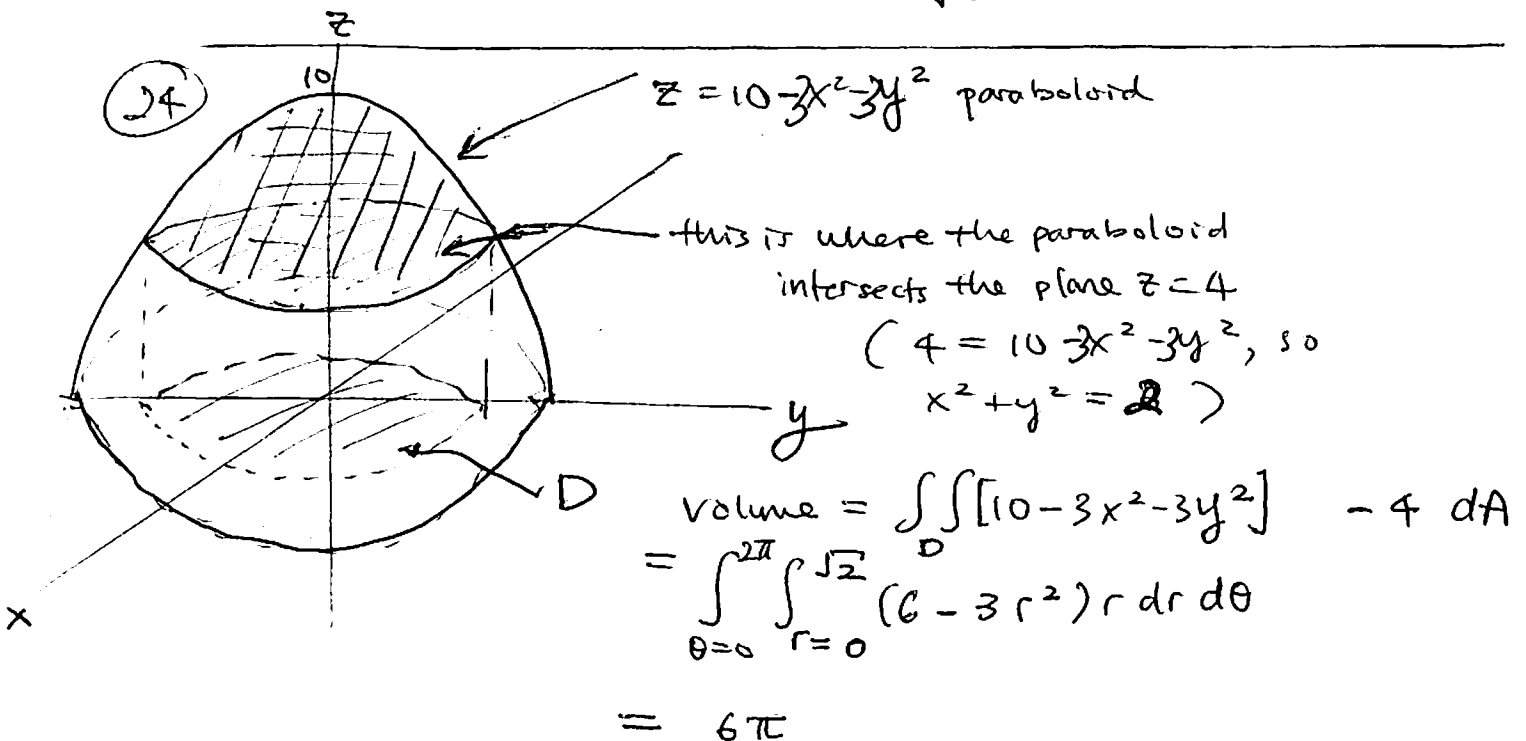 z
10
24
z = 10-3x²-3y² paraboloid
this is where the paraboloid
intersects the plane z=4
( 4 = 10-3x²-3y², so
x²+y² = 2 )
y
D
x
volume = ∫∫_D [10-3x²-3y²] - 4 dA
= ∫_{θ=0}^{2π} ∫_{r=0}^{√2} (6-3r²) r dr dθ
= 6π